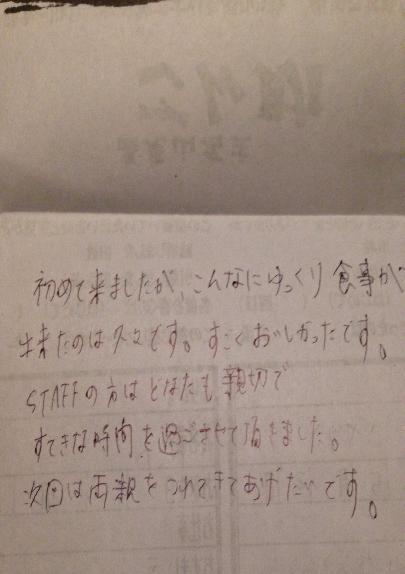 初めて来ましたが、こんなにゆっくり食事が
出来たのは久々です。すごくおいしかったです。
STAFFの方はどなたも親切で
すてきな時間を過ごさせて頂きました。
次回は両親をつれてきてあげたいです。